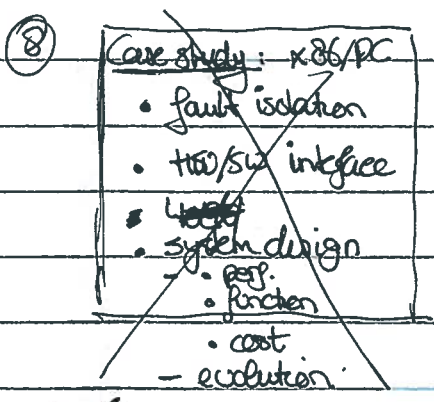 8
Case study: x86/PC
• fault isolation
• HW/SW interface
•
• system design
- • perf.
• function
• cost
- evolution